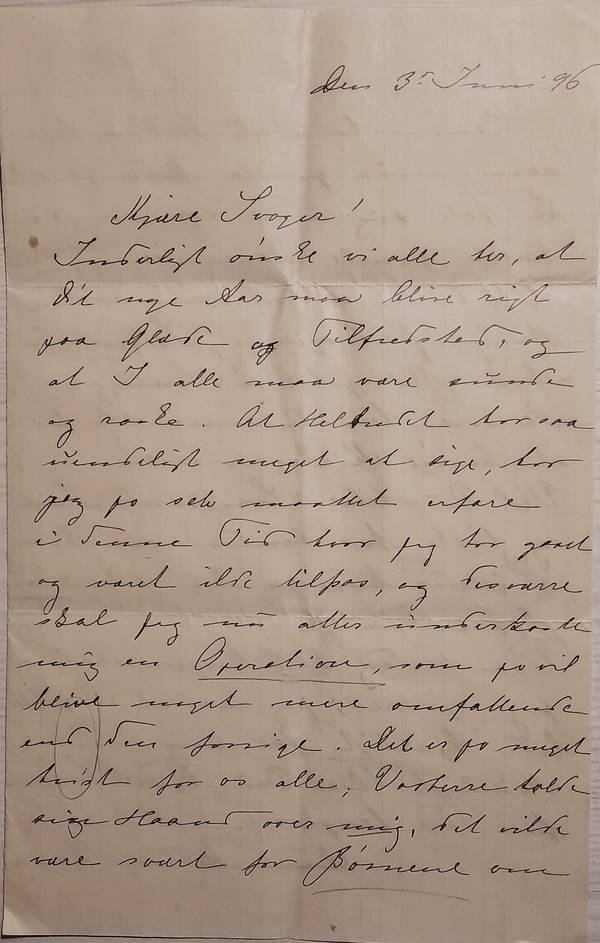 Den 3' Juni 96
Kjære Svoger!
Inderligt ønske vi alle her, at
dit nye Aar maa blive rigt
paa Glæde og Tilfredshed, og
at I alle maa være sunde
og raske. At Helbredet har saa
uendeligt meget at sige, har
jeg jo selv maattet erfare
i denne Tid hvor jeg har gaaet
og været ilde tilpas, og desværre
skal jeg nu atter underkaste
mig en Operation, som jo vil
blive meget mere omfattende
end den forrige. Det er jo meget
trist for os alle, Vorherre holde
sin Haand over mig, det vilde
være svært for Børnene om